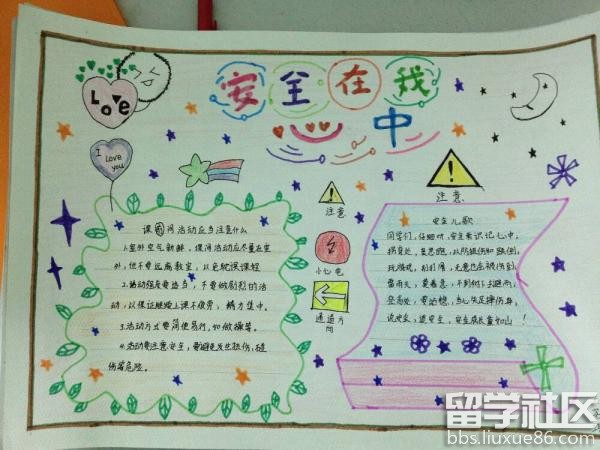 安全在我
中
Love
I Love you
注意
注意
小心电
通道方
向
课间活动应当注意什么
1.室外空气新鲜，课间活动应尽量在室
外，但不要远离教室，以免耽误课程
2.活动强度要适当，不要做剧烈的活
动，以保证继续上课不疲劳，精力集中。
3.活动方式要简便易行，如做操等。
4.活动要注意安全，要避免发生扭伤、碰
伤等危险。
安全儿歌
同学们，仔细听，安全常识记心中；
拐弯处，莫急跑，以防撞伤和跌倒；
雷雨天，
登高处，要站稳，
说安全，道安全，安全成长重如山！
留学社区
bbs.liuxue86.com